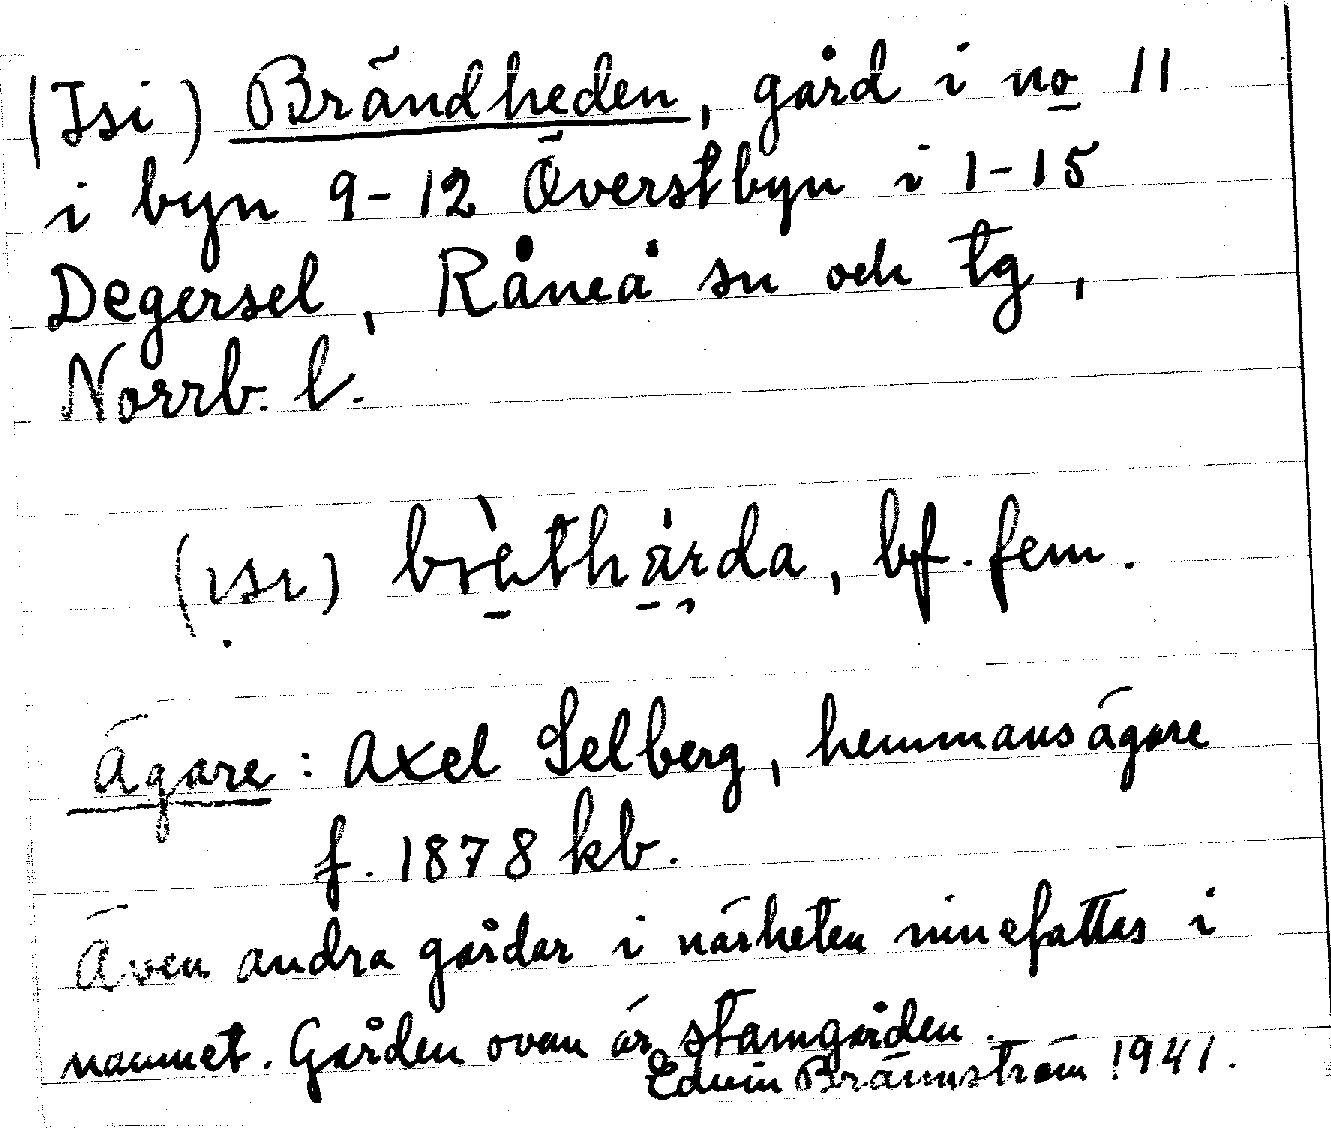 (Isi) Brändheden, gård i no 11
i byn 9-12 Överstbyn i 1-15
Degersel, Råneå sn och tg,
Norrb. l.
(ısı) brèthårda, bf. fem.
Ägare: Axel Selberg, hemmansägare
f. 1878 kb.
Även andra gårdar i närheten innefattas i
namnet. Gården ovan är stamgården.
Edvin Brännström 1941.